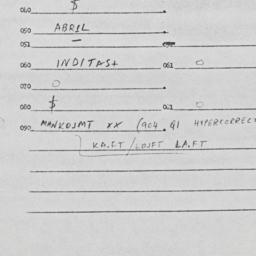 040 $
050 ABRIL
051 —
060 INDITAS+ 061 0
070 0
080 $ 021 0
090 MANKOJMT XX (904. GI HYPERCORRECT
KA.FT / LOJFT LA.FT